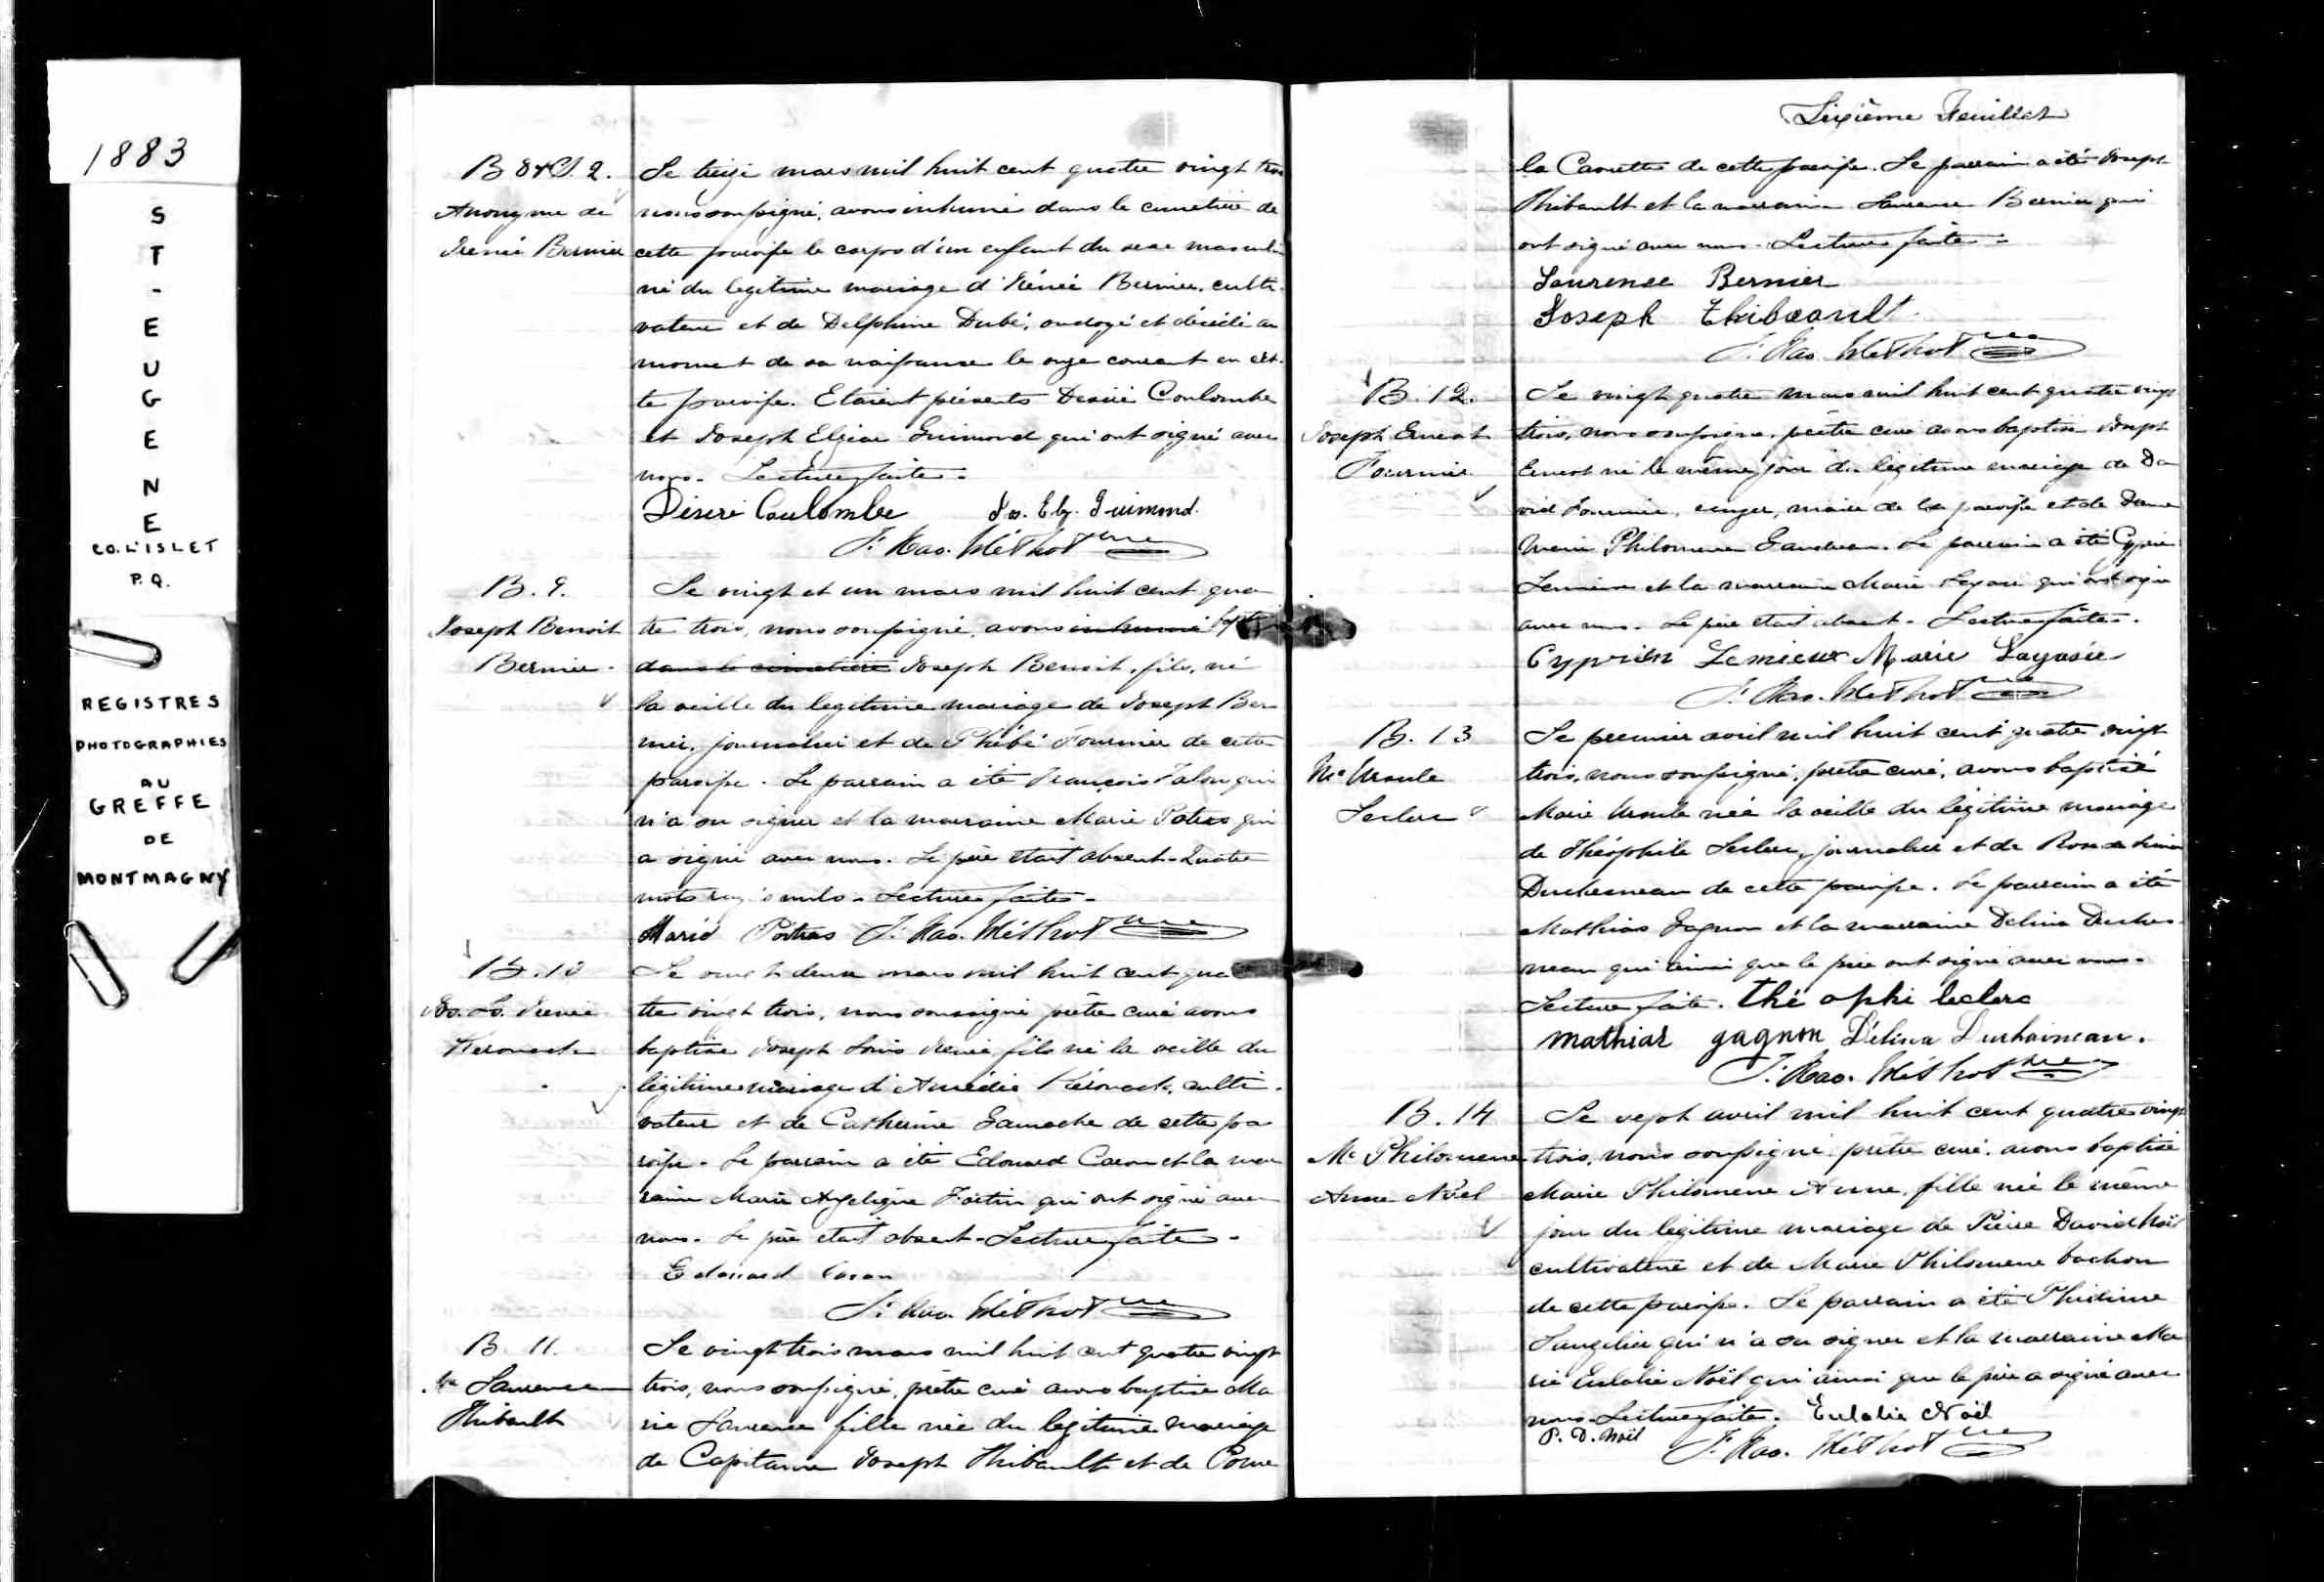 1883
S
T
-
E
U
G
E
N
E
CO. L'ISLET
P.Q.
REGISTRES
PHOTOGRAPHIES
AU
GREFFE
DE
MONTMAGNY
B 8 & S. 2.
Anonyme de
Irénée Bernier
Le treize mars mil huit cent quatre vingt trois
nous soussigné, avons inhumé dans le cimetière de
cette paroisse le corps d'un enfant du sexe masculin
né du légitime mariage d'Irénée Bernier, culti-
vateur et de Delphine Dubé, ondoyé et décédé au
moment de sa naissance le onze courant en cet-
te paroisse. Etaient présents Desiré Coulombe
et Joseph Elzéar Guimond qui ont signé avec
nous. Lecture faite.
Désiré Coulombe Jos. Elz. Guimond.
F. Rao. Méthot ptre
B. 9.
Joseph Benoit
Bernier.
Le vingt et un mars mil huit cent qua-
tre trois, nous soussigné, avons inhumé
dans le cimetière Joseph Benoit, fils, né
la veille du légitime mariage de Joseph Ber-
nier, journalier et de Phébé Fournier de cette
paroisse. Le parrain a été François Talon qui
n'a su signer et la marraine Marie Potras qui
a signé avec nous. Le père était absent. Quatre
mots nuls. Lecture faite.
Marie Potras F. Rao. Méthot ptre
B. 10
Jos. Ls. Irénée
Kérouack
Le vingt deux mars mil huit cent qua-
tre vingt trois, nous soussigné prêtre curé avons
baptisé Joseph Louis Irénée fils né la veille du
légitime mariage d'Amédée Kérouack, culti-
vateur et de Catherine Gamache de cette pa-
roisse. Le parrain a été Edouard Caron et la mar-
raine Marie Angelique Fortin qui ont signé avec
nous. Le père était absent. Lecture faite.
Edouard Caron
F. Rao. Méthot ptre
B. 11.
Me Laurence
Thibault
Le vingt trois mars mil huit cent quatre vingt
trois, nous soussigné, prêtre curé avons baptisé Ma-
rie Laurence fille née du légitime mariage
de Capitaine Joseph Thibault et de
Sixième Feuillet
la Carotte de cette paroisse. Le parrain a été Joseph
Thibault et la marraine Laurence Bernier qui
ont signé avec nous. Lecture faite.
Laurence Bernier
Joseph Thibeault
F. Rao. Méthot ptre
B. 12.
Joseph Ernest
Fournier
Le vingt quatre mars mil huit cent quatre vingt
trois, nous soussigné, prêtre curé avons baptisé Joseph
Ernest né le même jour du légitime mariage de Da-
vid Fournier, écuyer, maire de la paroisse et de Dame
Marie Philomène Gaudreau. Le parrain a été Cyprien
Lemieux et la marraine Marie Legacé qui ont signé
avec nous. Le père était absent. Lecture faite.
Cyprien Lemieux Marie Lagasée
F. Rao. Méthot ptre
B. 13
Me Ursule
Leclerc
Le premier avril mil huit cent quatre vingt
trois, nous soussigné, prêtre curé, avons baptisé
Marie Ursule née la veille du légitime mariage
de Théophile Leclerc, journalier et de Rose de Lima
Duchesneau de cette paroisse. Le parrain a été
Mathias Gagnon et la marraine Delina Duches-
neau qui ainsi que le père ont signé avec nous.
Lecture faite. thé ophi leclerc
mathias gagnon Délina Duchaineau.
F. Rao. Méthot ptre
B. 14
Me Philomene
Anne Noël
Le sept avril mil huit cent quatre vingt
trois, nous soussigné prêtre curé, avons baptisé
Marie Philomene Anne, fille née le même
jour du légitime mariage de Pierre David Noël
cultivateur et de Marie Philomene Vachon
de cette paroisse. Le parrain a été Phidime
Langelier qui n'a su signer et la marraine Ma-
rie Eulalie Noël qui ainsi que le père a signé avec
nous. Lecture faite. Eulalie Noël
P. D. Noël F. Rao. Méthot ptre